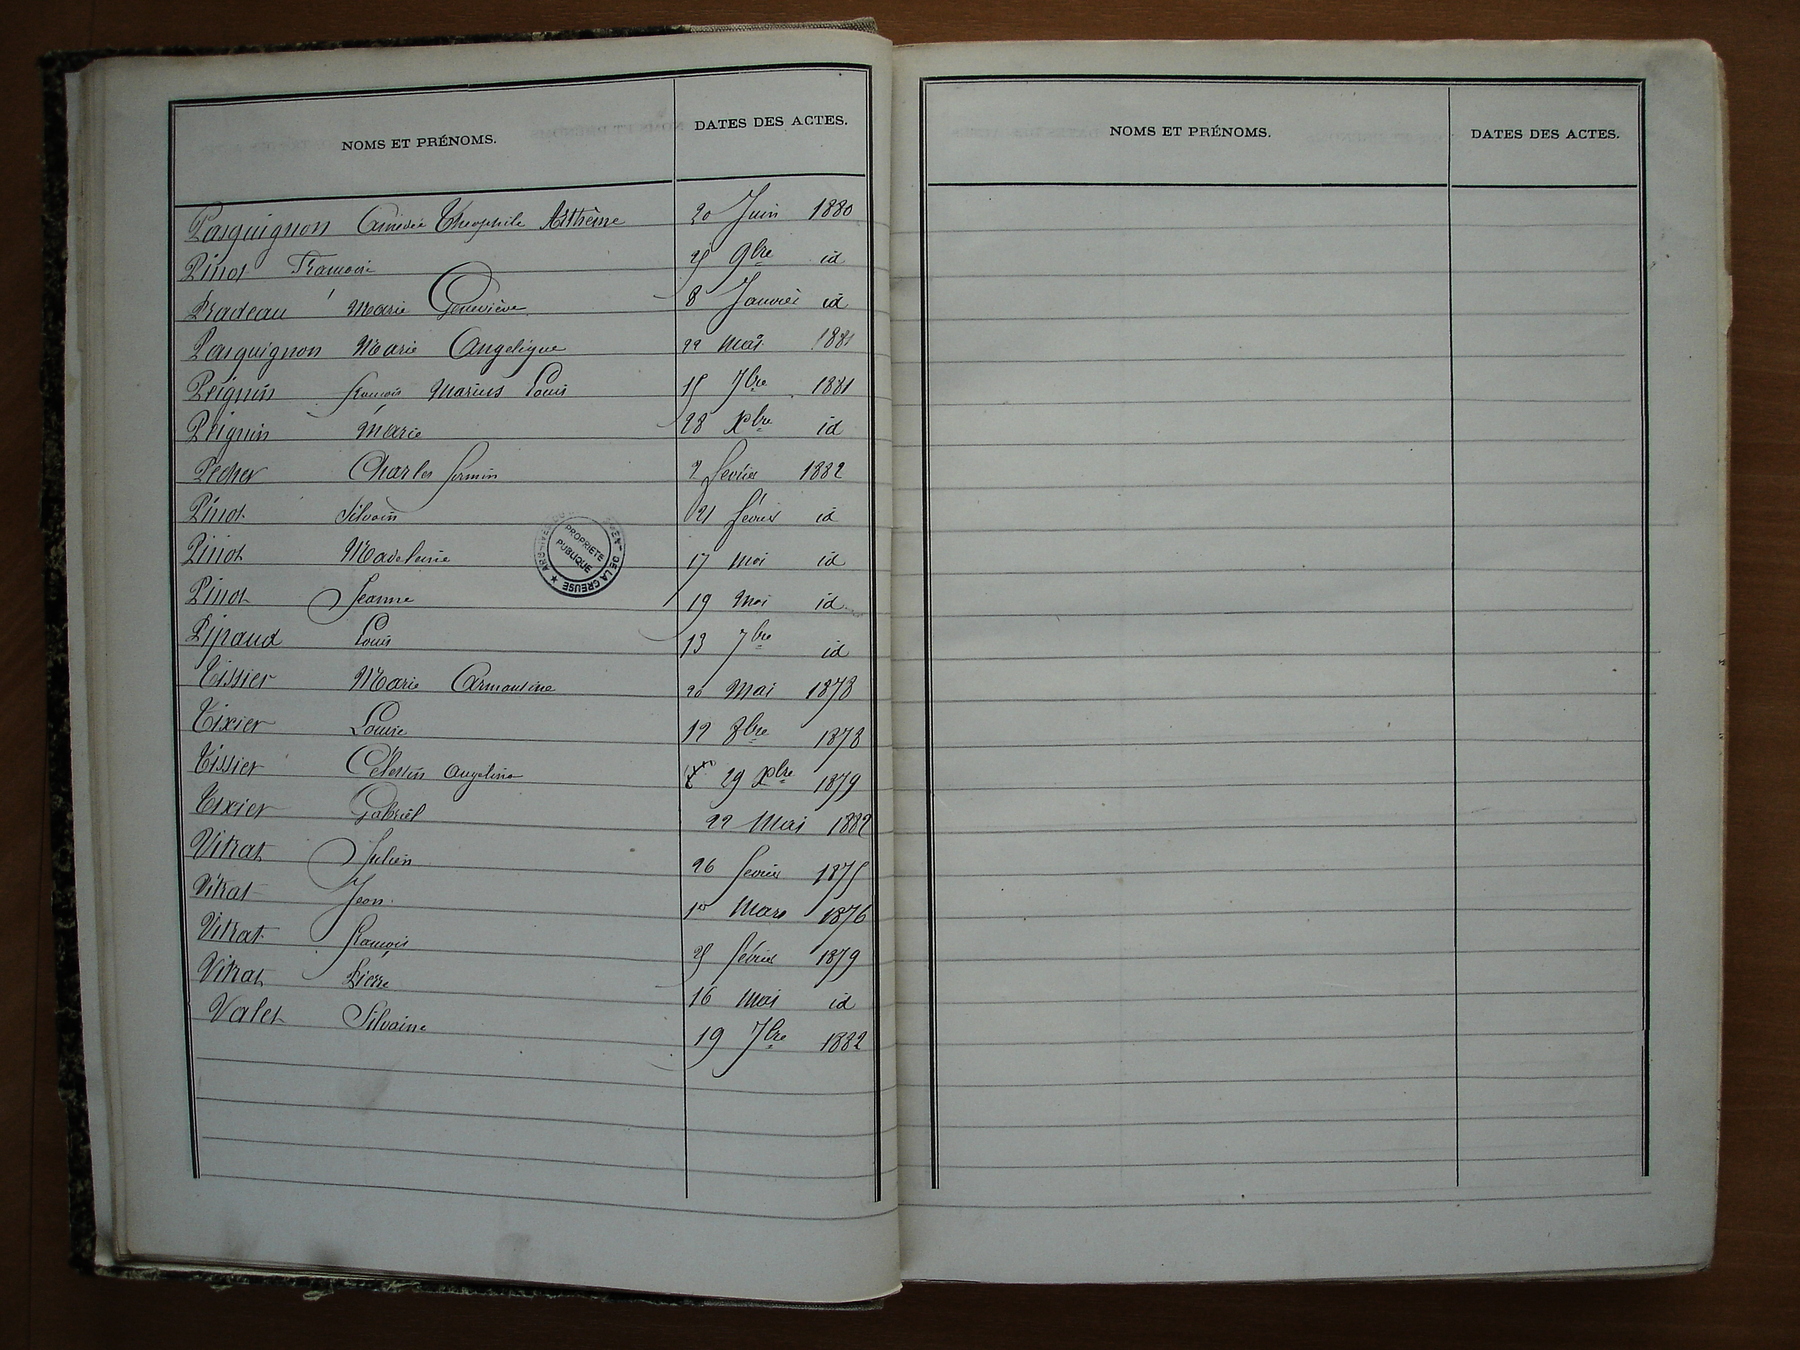 NOMS ET PRÉNOMS. DATES DES ACTES.
Pasquignon Amédée Théophile Althême 20 Juin 1880
Pinot François 25 9bre id
Pradeau Marie Geneviève 8 Janvier id
Pasquignon Marie Angelique 22 mai 1881
Peignin françois Marius Louis 15 7bre 1881
Peignin Marie 28 Xbre id
Pecher Charles firmin 2 fevrier 1882
Pinot Silvain 21 février id
Pinot Madeleine 17 Mai id
Pinot Jeanne 19 Mai id
Pipaud Louis 13 7bre id
Tissier Marie Armantine 20 Mai 1878
Tixier Louise 12 8bre 1878
Tissier Célestin Angelina 29 Xbre 1879
Tixier Gabriel 22 Mai 1882
Vitrat Julien 26 fevrier 1875
Vitrat Jean 1er Mars 1876
Vitrat françois 25 février 1879
Vitrat Pierre 16 Mai id
Valet Silvaine 19 7bre 1882
ARCHIVES DU DÉPARTEMENT DE LA CREUSE
PROPRIETE
PUBLIQUE
NOMS ET PRÉNOMS. DATES DES ACTES.